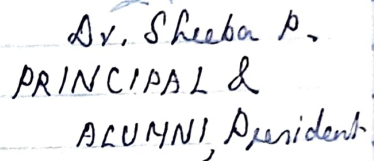 Dr. Sheeba P.
PRINCIPAL &
ALUMNI, President